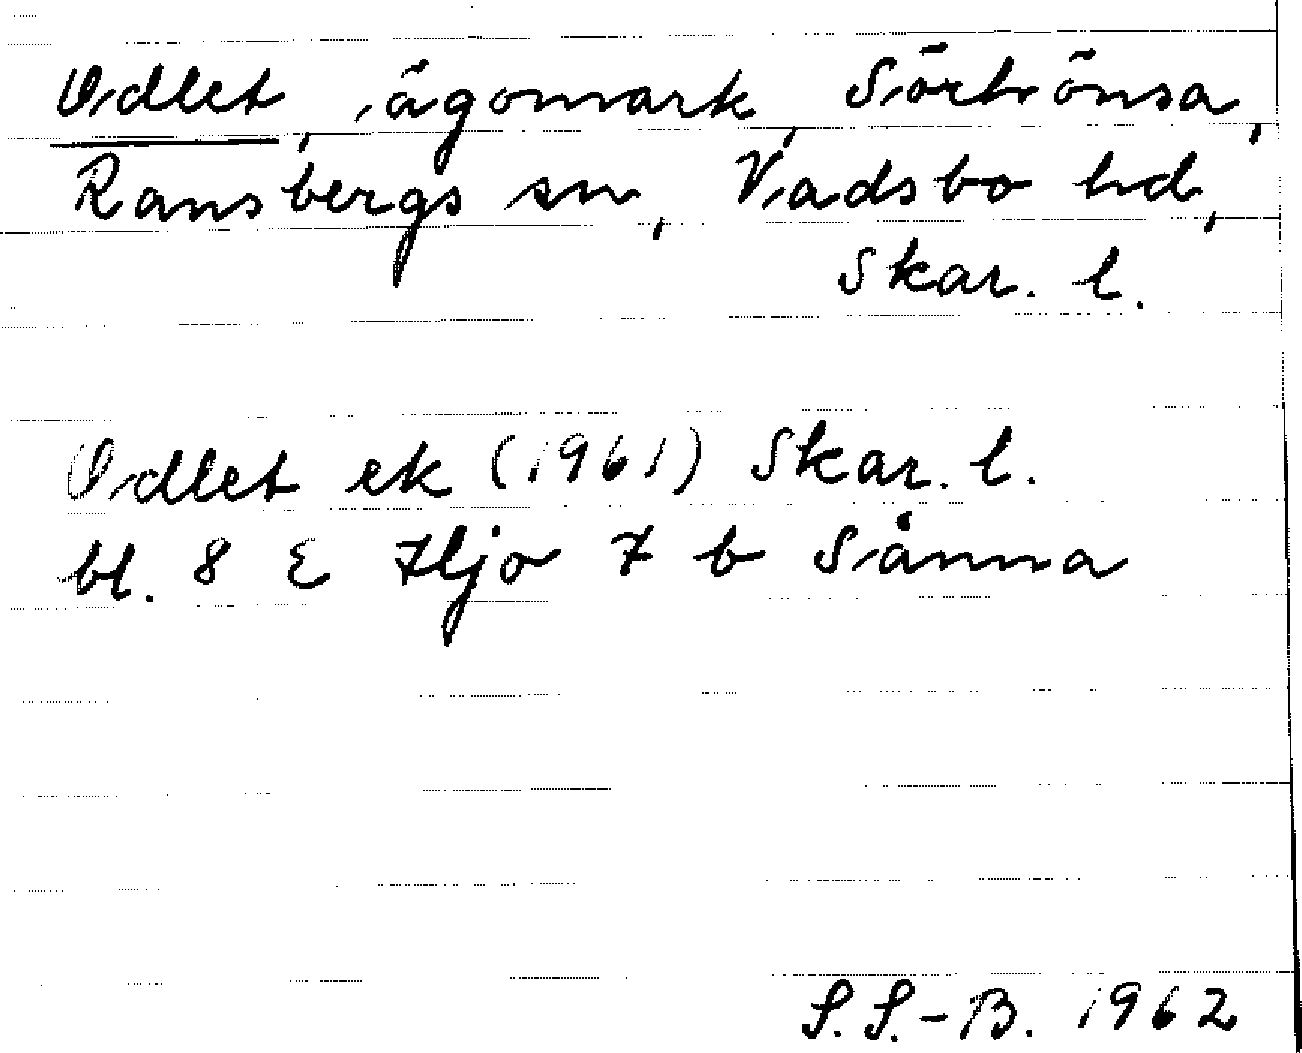 Odlet, ägomark, Sörhönsa,
Ransbergs sn, Vadsbo hd,
Skar. l.
Odlet ek (1961) Skar. l.
bl. 8 E Hjo 7 b Sånna
S. S.-B. 1962